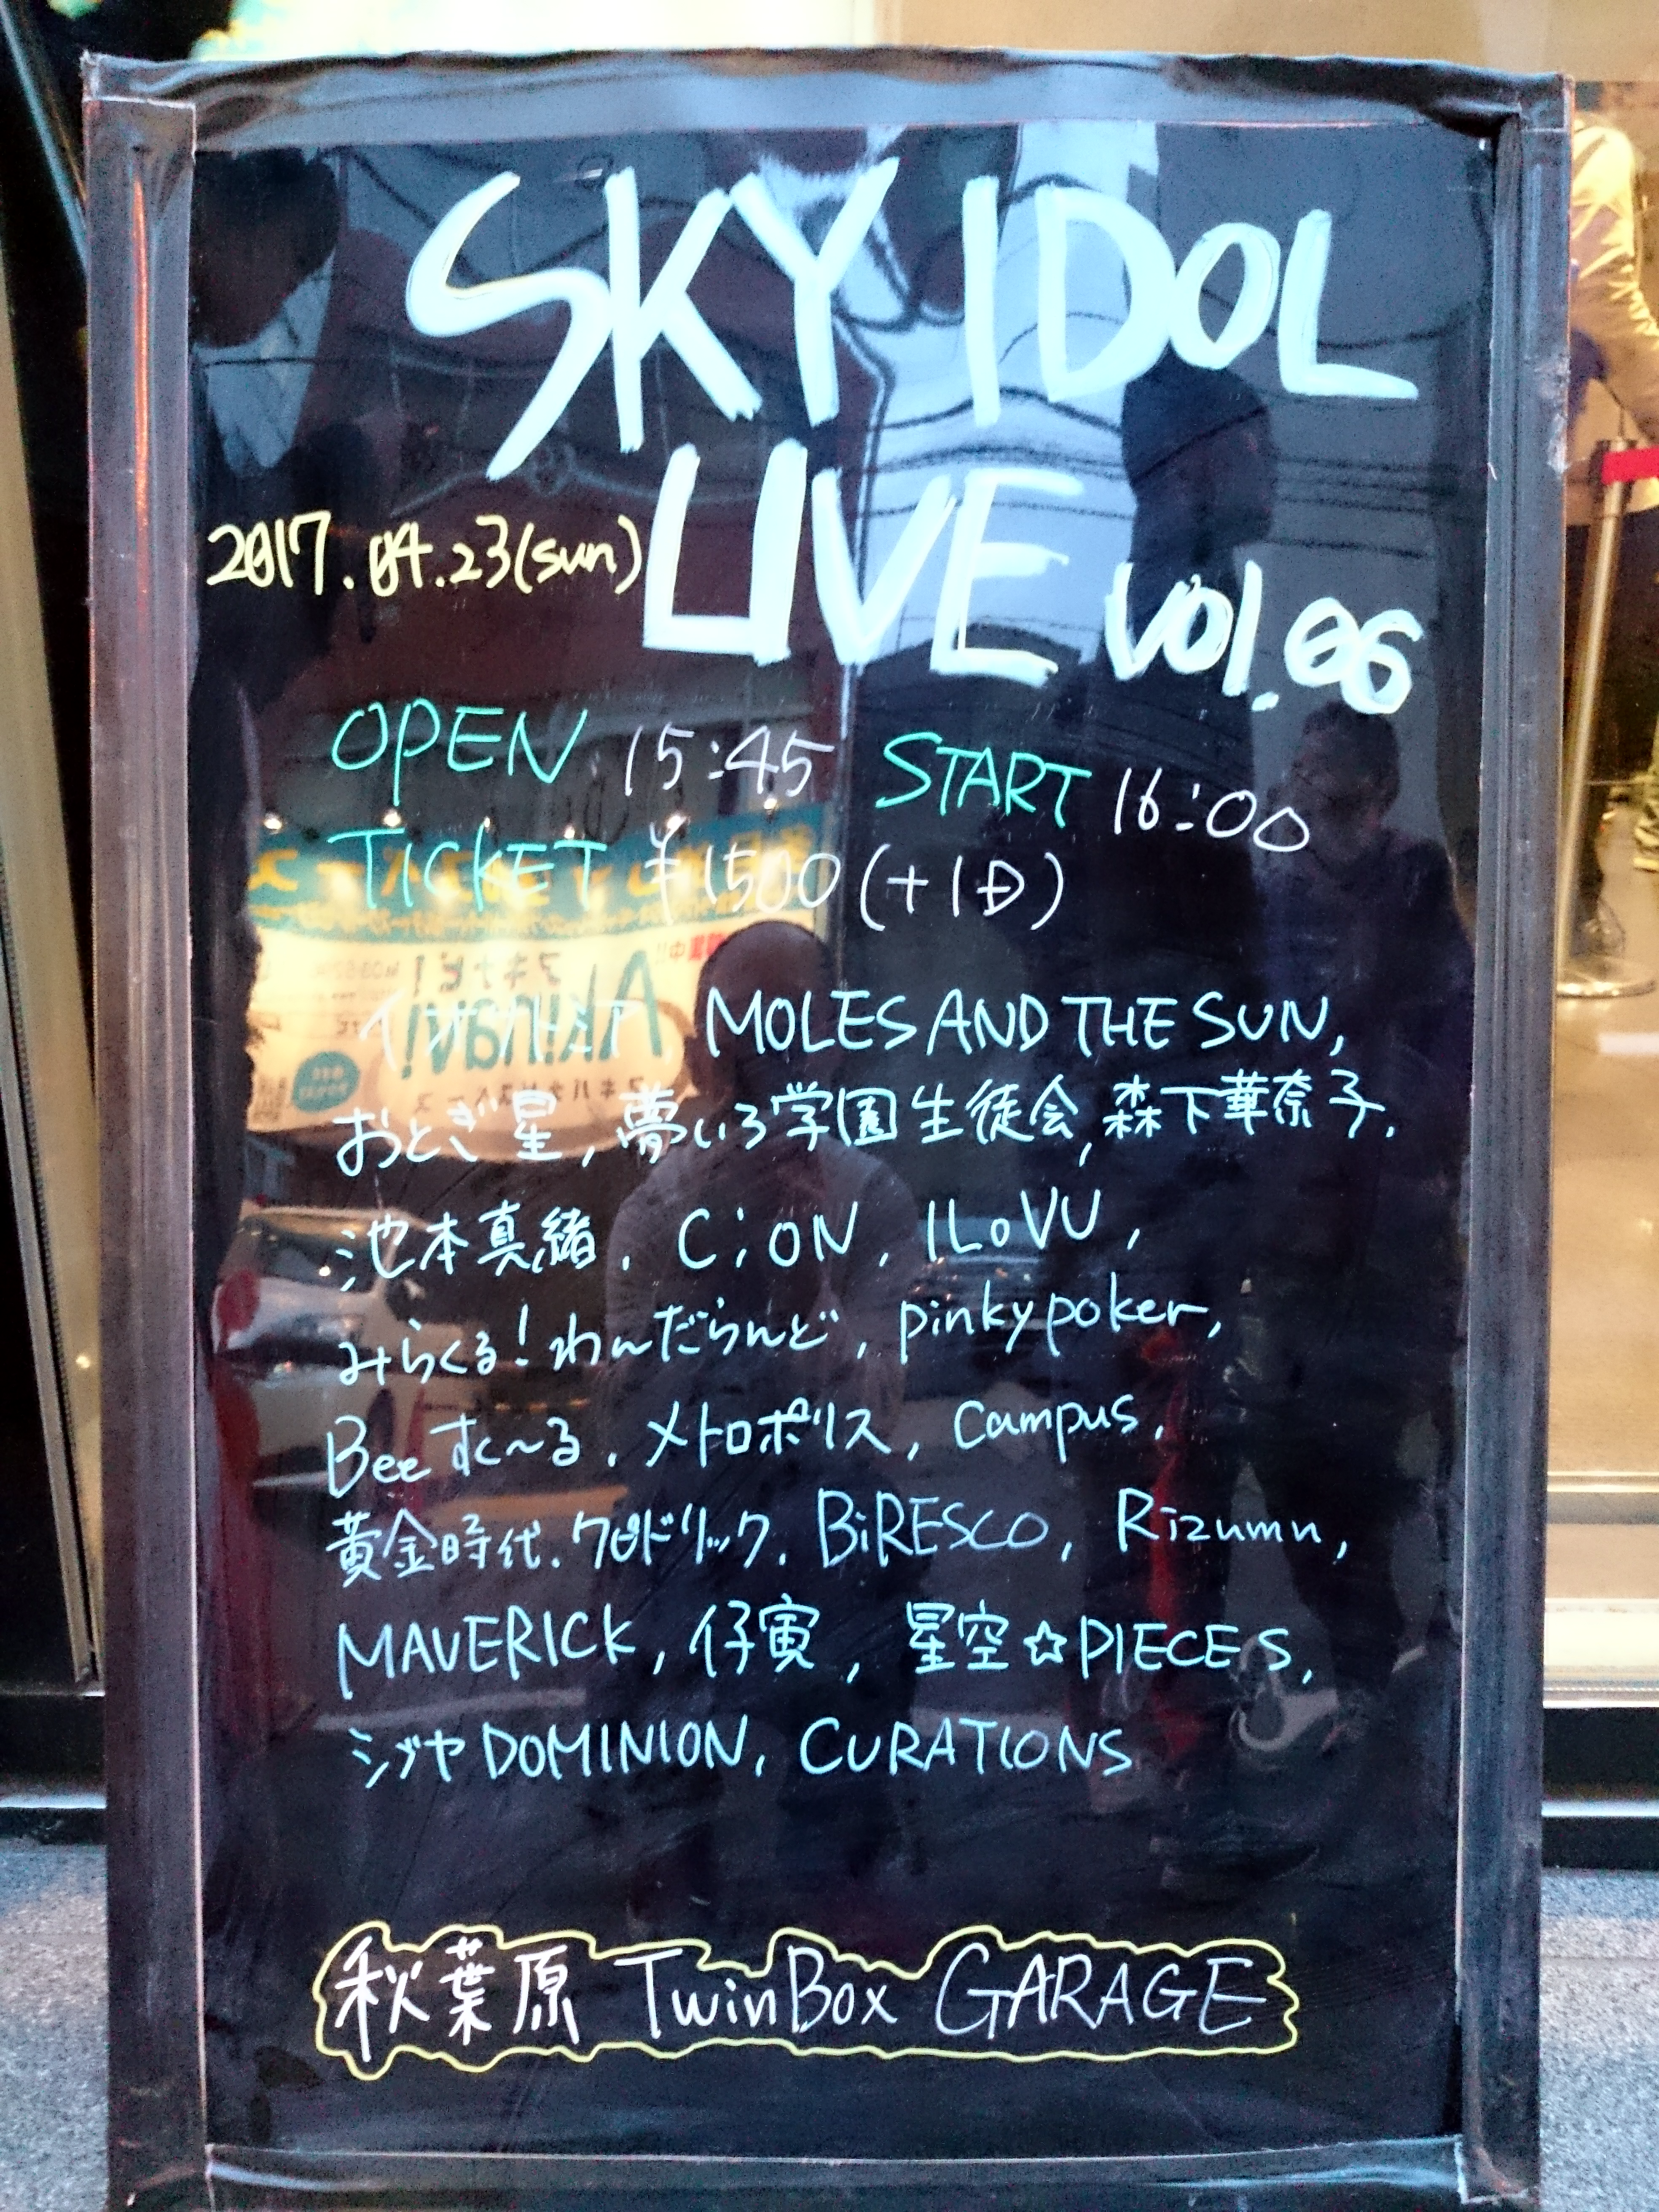 SKY IDOL
LIVE vol.06
2017.04.23(sun)
OPEN 15:45 START 16:00
TICKET ¥1500(+1D)
イオサトミア, MOLES AND THE SUN,
おとぎ星, 夢いろ学園生徒会, 森下華奈子,
池本真緒, C;ON, ILoVU,
みらくる!わんだらんど, pinkypoker,
Beeすく〜る, メトロポリス, Campus,
黄金時代, クロドリック, BiRESCO, Rizumu,
MAVERICK, 仔寅, 星空☆PIECES,
シブヤDOMINION, CURATIONS
秋葉原 TwinBox GARAGE
Akinavi